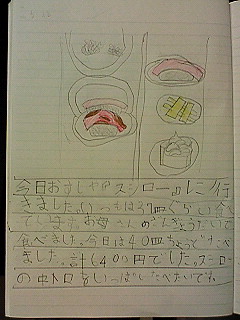 今日おすしやのスシローに行
きました。いつもは37皿ぐらい食べ
てします。お母さんのたんじょうびたいで
食べました。今日は40皿ちょうどたべ
ました。計5400円でした。スシロー
の中トロをいっぱいたべたいです